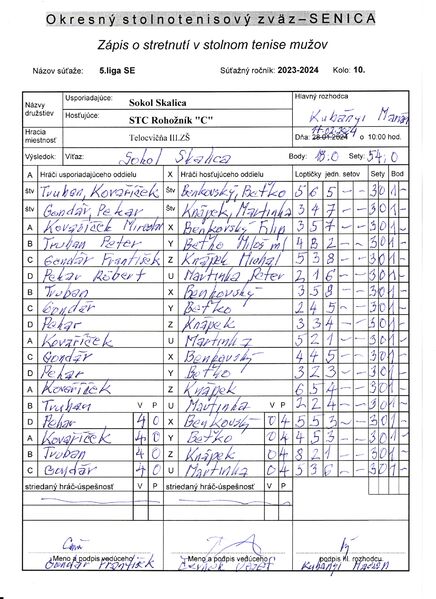 Okresný stolnotenisový zväz – SENICA
Zápis o stretnutí v stolnom tenise mužov
Názov súťaže: 5.liga SE Súťažný ročník: 2023-2024 Kolo: 10.
Názvy družstiev Usporiadajúce: Sokol Skalica Hlavný rozhodca
Hosťujúce: STC Rohožník "C" Kubányi Marián
Hracia miestnosť Telocvičňa III.ZŠ Dňa: 28.01.2024 o 10:00 hod.
Výsledok: Víťaz: Sokol Skalica Body: 18:0 Sety: 54:0
A Hráči usporiadajúceho oddielu X Hráči hosťujúceho oddielu Loptičky jedn. setov Sety Bod
štv Truban, Kovaříček štv Benkovský, Beťko 5 6 5 – – 3 0 1 –
štv Gondár, Pekar štv Knápek, Martinka 3 4 7 – – 3 0 1 –
A Kovaříček Miroslav X Benkovský Filip 3 5 7 – – 3 0 1 –
B Truban Peter Y Beťko Miloš ml 4 8 2 – – 3 0 1 –
C Gondár František Z Knápek Michal 5 3 8 – – 3 0 1 –
D Pekar Róbert U Martinka Peter 2 1 6 – – 3 0 1 –
B Truban X Benkovský 3 5 8 – – 3 0 1 –
C Gondár Y Beťko 2 4 5 – – 3 0 1 –
D Pekar Z Knápek 3 3 4 – – 3 0 1 –
A Kovaříček U Martinka 5 2 1 – – 3 0 1 –
C Gondár X Benkovský 4 4 5 – – 3 0 1 –
D Pekar Y Beťko 3 2 3 – – 3 0 1 –
A Kovaříček Z Knápek 6 5 4 – – 3 0 1 –
B Truban V P U Martinka V P 2 2 4 – – 3 0 1 –
D Pekar 4 0 X Benkovský 0 4 5 5 3 – – 3 0 1 –
A Kovaříček 4 0 Y Beťko 0 4 4 5 3 – – 3 0 1 –
B Truban 4 0 Z Knápek 0 4 8 2 1 – – 3 0 1 –
C Gondár 4 0 U Martinka 0 4 5 3 6 – – 3 0 1 –
striedaný hráč-úspešnosť V P striedaný hráč-úspešnosť V P
Meno a podpis vedúceho Meno a podpis vedúceho podpis hl. rozhodcu
Gondár František Kubányi Marián